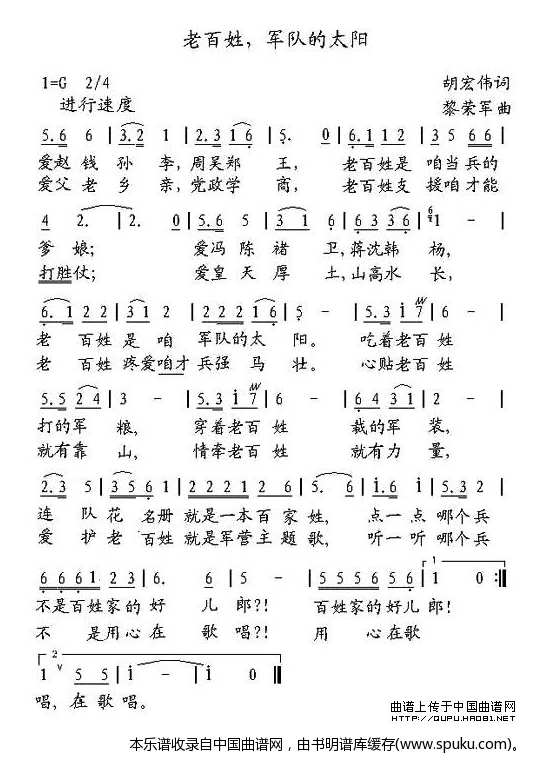 老百姓，军队的太阳
1=G 2/4 胡宏伟词
进行速度 黎荣军曲
5.6 6 | 3.2 | 2.3 1 6 | 5. 0 | 6.1 1 2 | 3 5 6 6 |
爱赵 钱 孙 李，周吴郑 王， 老百姓是 咱当兵的
爱父 老 乡 亲，党政学 商， 老百姓支 援咱才能
4 2. | 2. 0 | 5.6 5 | 3 1 | 6 3 3 6 | 1 - |
爹 娘； 爱冯 陈 褚 卫，蒋沈韩 杨，
打胜仗； 爱皇 天 厚 土，山高水 长，
6. 1 2 2 | 3 1 | 2 2 2 1 6 | 5 - | 5.3 1 7 |
老 百姓 是 咱 军队的太 阳。 吃着老百 姓
老 百姓 疼爱咱才 兵强 马 壮。 心贴老百 姓
5.5 2 4 | 3 - | 5.3 1 7 | 6 - | 6 4 3 1 | 2 - |
打的军 粮， 穿着老百 姓 裁的军 装，
就有靠 山， 情牵老百 姓 就有力 量，
2.3 5 | 1 3 5 6 | 2 2 2 1 2 1 | 5. 6 | 1.6 1 | 5.3 5 5 2 |
连 队 花 名册 就是一本百 家 姓， 点一点 哪个兵
爱 护 老 百姓 就是军营主 题 歌， 听一听 哪个兵
6 6 6 1 | 3. 2 | 6. 6 | 5 - | 5 5 5 5 6 6 | 1. 1 0 :|
不是百姓家的 好 儿 郎？！ 百姓家的好儿 郎！
不 是用心在 歌 唱？！ 用 心在歌
2.
1 5 5 | 1 - | 1 0 ‖
唱，在 歌 唱。
曲谱上传于中国曲谱网
HTTP://QUPU.HAO81.NET
本乐谱收录自中国曲谱网，由书明谱库缓存(www.spuku.com)。